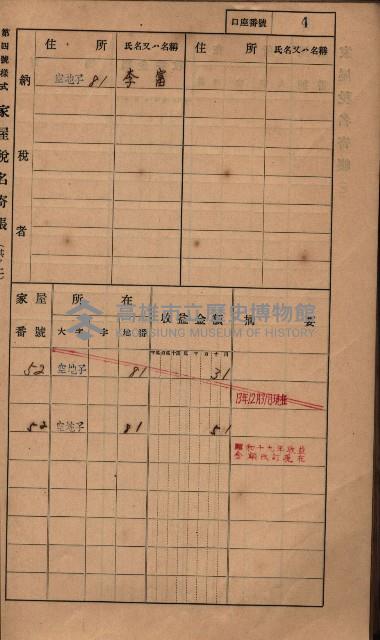 口座番號 4
第四號樣式 家屋稅名寄帳
住所 氏名又ハ名稱 住所 氏名又ハ名稱
納稅者
空地子 81 李富
家屋番號 所在 大字 字 地番 收益金額 摘要
高雄市立歷史博物館
KAOHSIUNG MUSEUM OF HISTORY
52 空地子 81 31
19年12月31日現在
52 空地子 81 51
昭和十九年收益
金額改訂現在